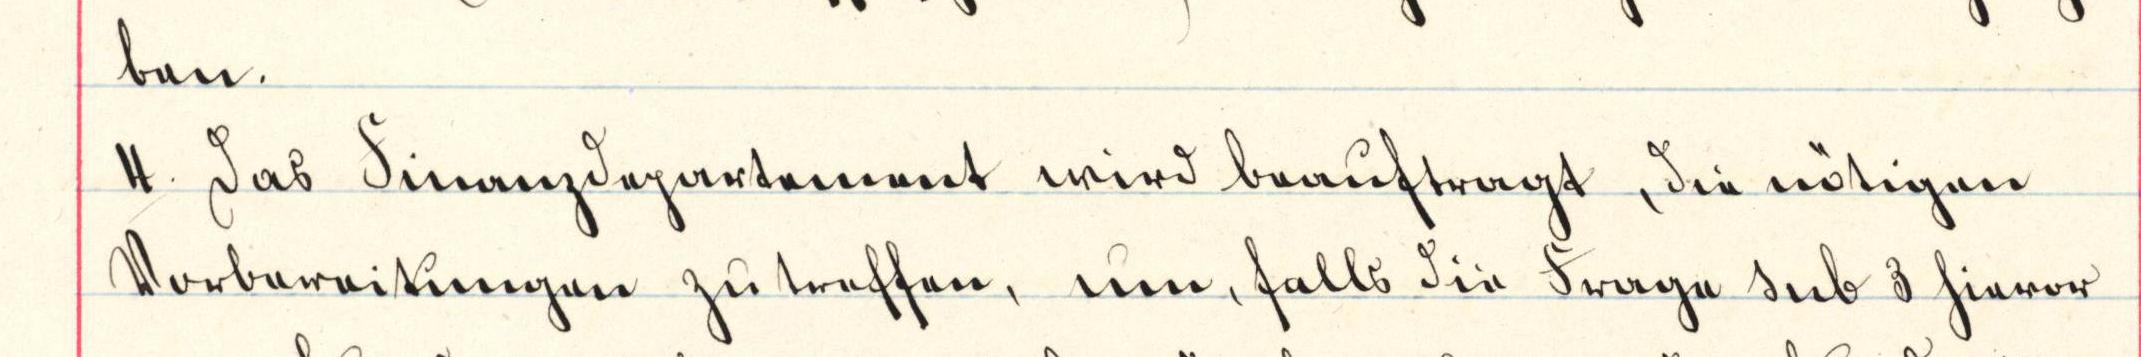 ben.
4. Das Finanzdepartement wird beauftragt, die nötigen
Vorbereitungen zu treffen, um, falls die Frage sub 3 hievor